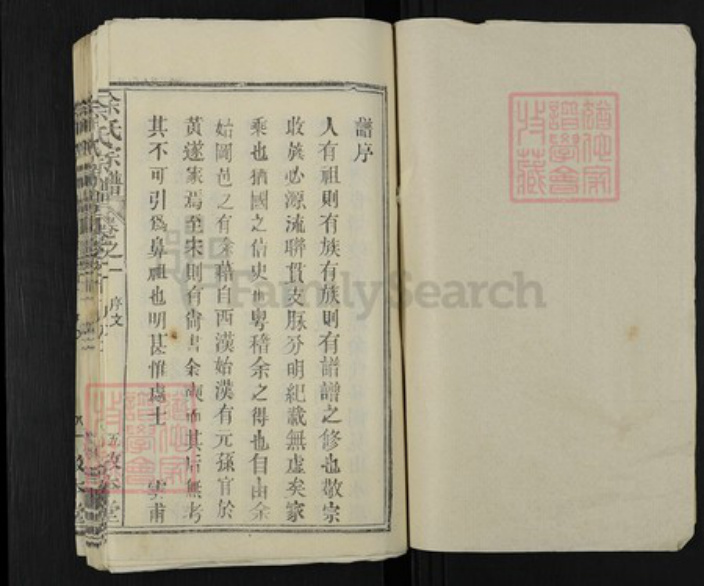 譜序
人有祖則有族有族則有譜譜之修也敬宗
收族必源流聯貫支脈分明紀載無虛矣家
乘也猶國之信史也粵稽余之得也自由余
始岡邑之有余藉自西漢始漢有元孫官於
黃遂家焉至宋則有尚書余 其后無考
其不可引為鼻祖也明甚惟處士 雲甫
余氏宗譜 卷之一
序文
敬本堂
FamilySearch